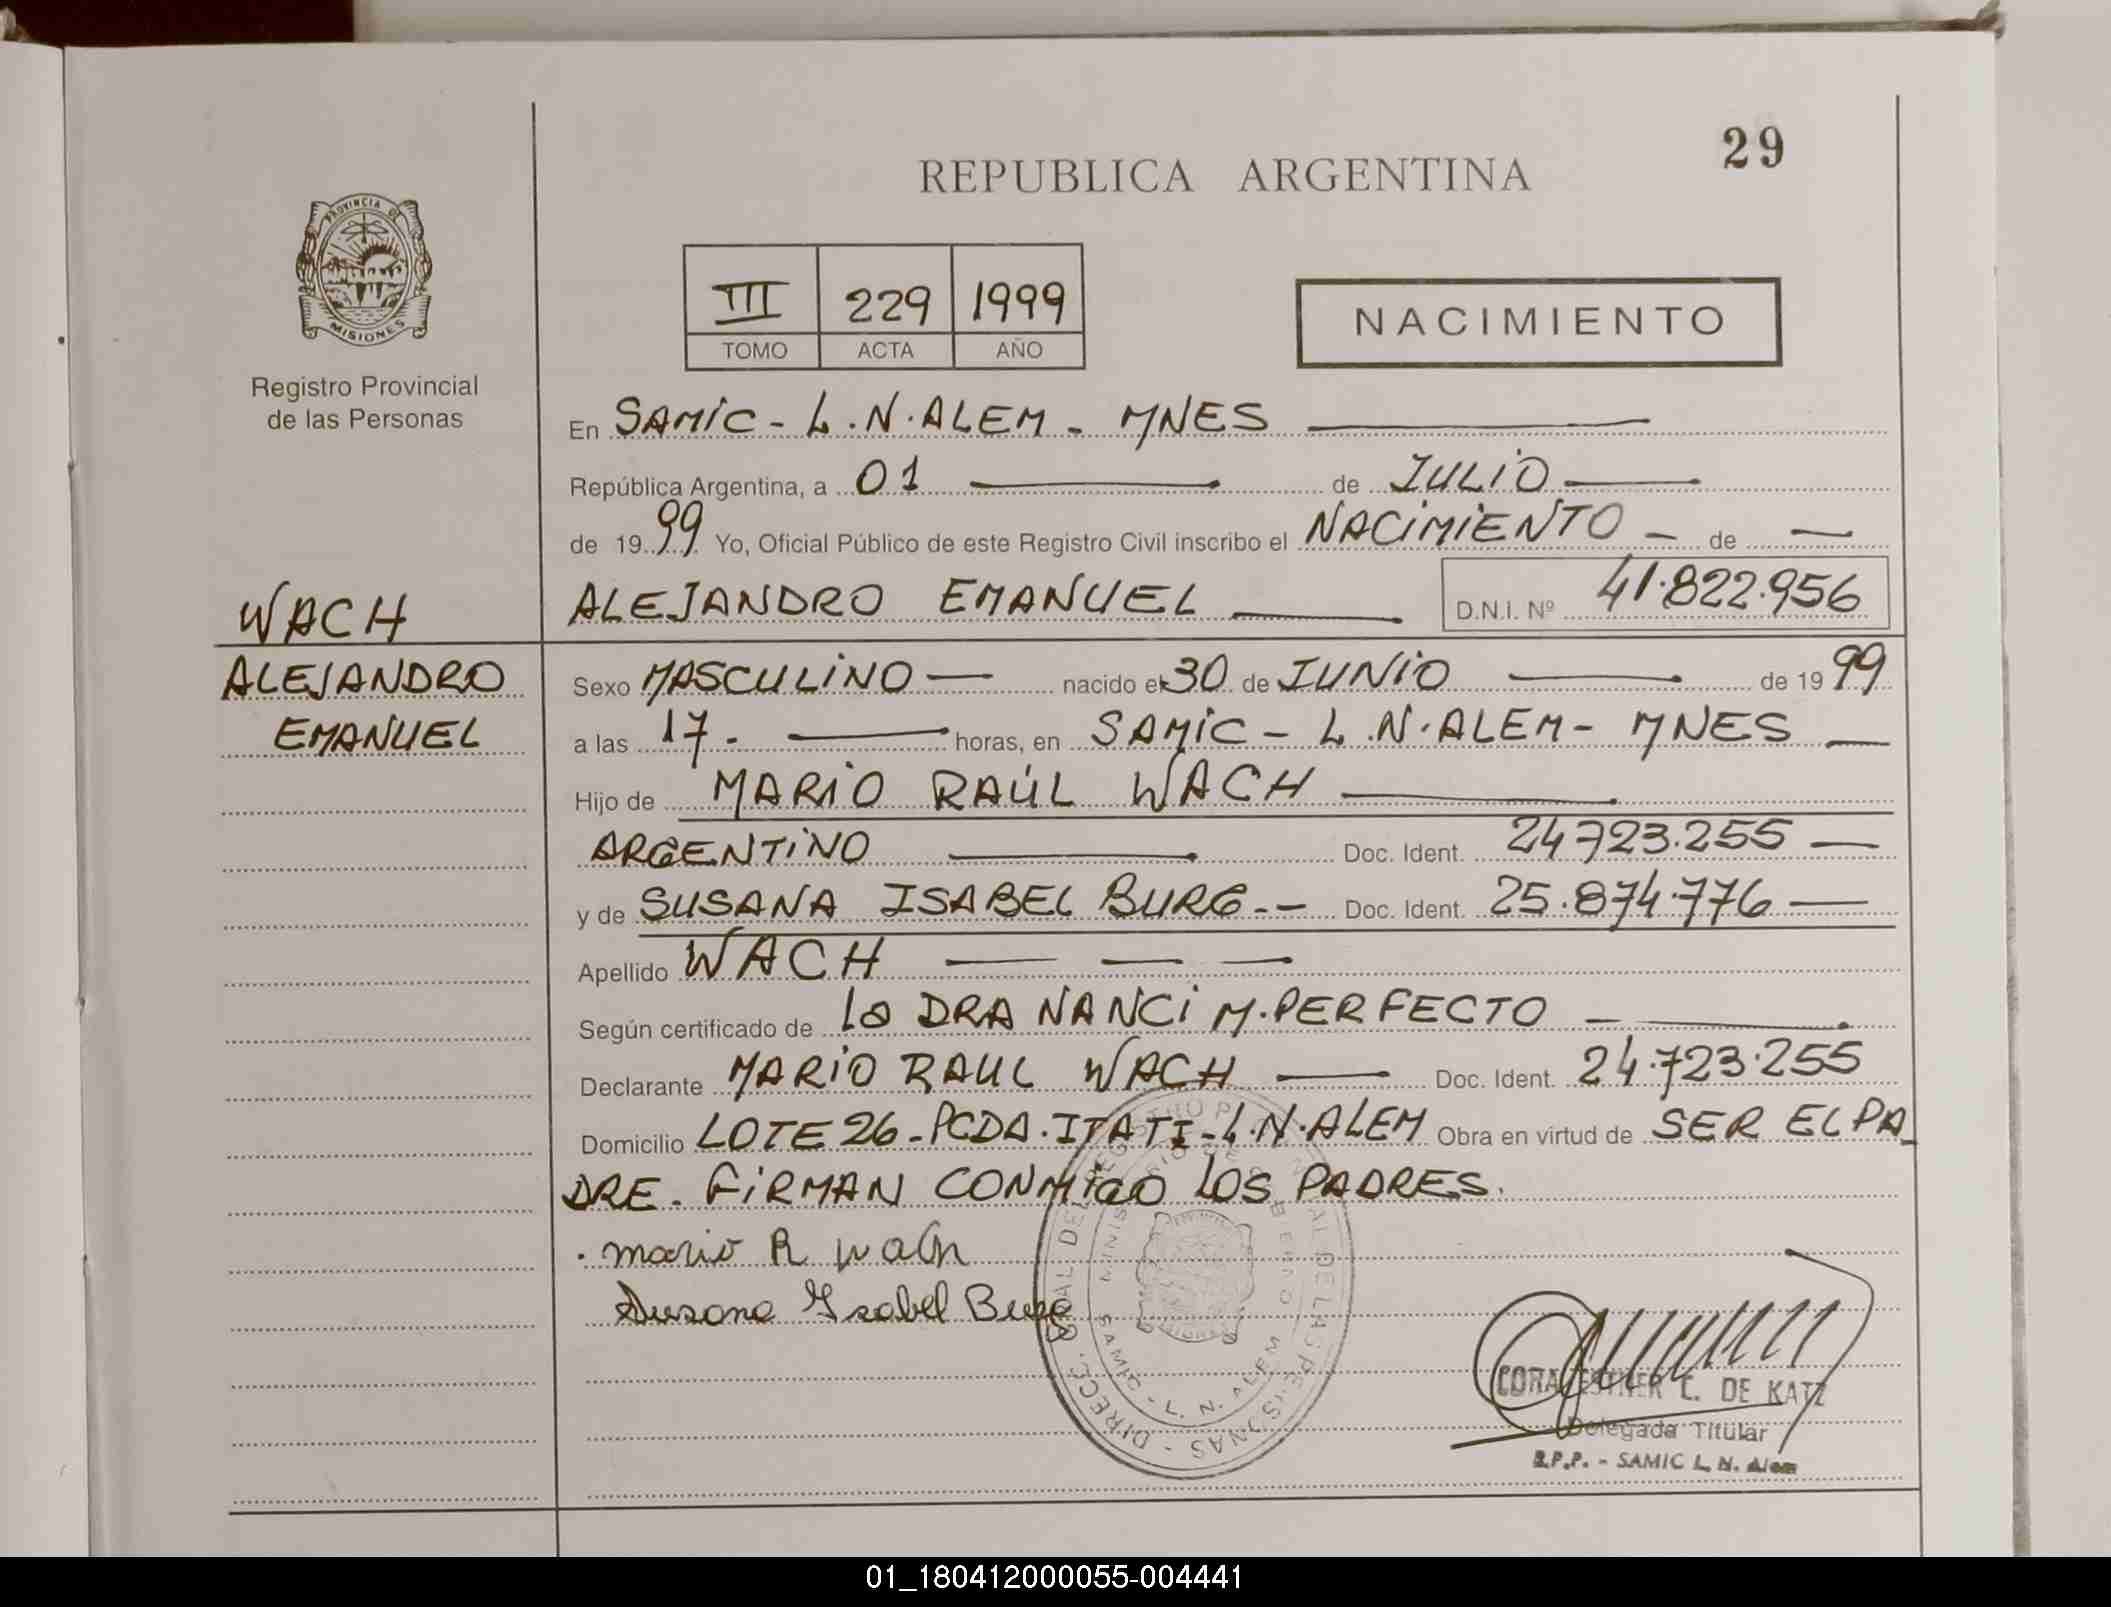 29
REPUBLICA ARGENTINA
PROVINCIA DE
MISIONES
Registro Provincial
de las Personas
III 229 1999
TOMO ACTA AÑO
NACIMIENTO
En SAMIC - L.N.ALEM - MNES
República Argentina, a 01 de JULIO
de 1999 Yo, Oficial Público de este Registro Civil inscribo el NACIMIENTO de
ALEJANDRO EMANUEL D.N.I. Nº 41.822.956
WACH
ALEJANDRO
EMANUEL
Sexo MASCULINO nacido el 30 de JUNIO de 1999
a las 17. horas, en SAMIC - L.N.ALEM - MNES
Hijo de MARIO RAÚL WACH
ARGENTINO Doc. Ident. 24723.255
y de SUSANA ISABEL BURG.- Doc. Ident. 25.874.776
Apellido WACH
Según certificado de la DRA NANCI M.PERFECTO
Declarante MARIO RAUL WACH Doc. Ident. 24.723.255
Domicilio LOTE 26-PCDA.ITATI-L.N.ALEM Obra en virtud de SER EL PA_
DRE. FIRMAN CONMIGO LOS PADRES.
Mario R Wach
Susana Isabel Burg
SAMIC - L. N. ALEM
CORA ESTHER C. DE KATZ
Delegada Titular
R.P.P. - SAMIC L. N. Alem
01_180412000055-004441